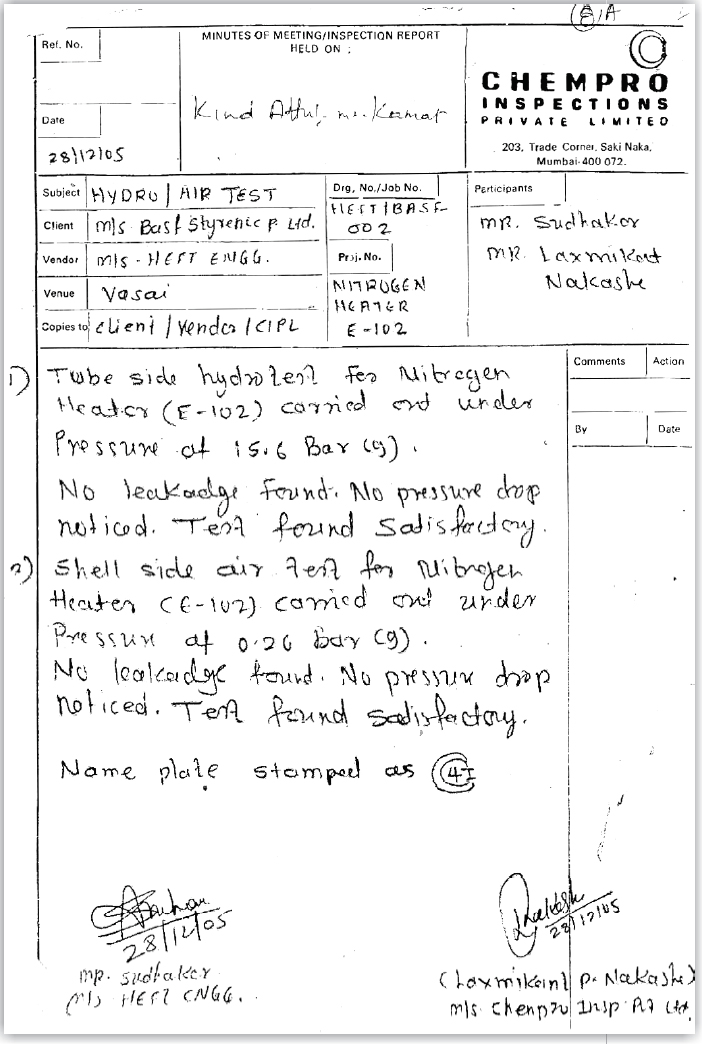 8/A
Ref. No.
MINUTES OF MEETING/INSPECTION REPORT
HELD ON :
Kind Attn. Mr. Kamat
CHEMPRO
INSPECTIONS
PRIVATE LIMITED
203, Trade Corner, Saki Naka,
Mumbai-400 072.
Date
28/12/05
Subject HYDRO / AIR TEST
Client M/s Basf Styrenic P. Ltd.
Vendor M/s - HEFT ENGG.
Venue Vasai
Copies to client / vendor / CIPL
Drg, No./Job No.
HEFT/BASF
002
Proj. No.
NITROGEN
HEATER
E-102
Participants
MR. Sudhakar
MR. Laxmikant
Nakashe
Comments Action
By Date
1) Tube side hydrotest for Nitrogen
Heater (E-102) carried out under
Pressure at 15.6 Bar (g).
No leakadge found. No pressure drop
noticed. Test found Satisfactory.
2) Shell side air test for Nitrogen
Heater (E-102) carried out under
Pressure at 0.26 Bar (g).
No leakadge found. No pressure drop
noticed. Test found satisfactory.
Name plate stamped as 4I
28/12/05
Mr. Sudhakar
M/s HEFT ENGG.
Nakashe
28/12/05
(Laxmikant P. Nakashe)
M/s Chempro Insp. Pvt Ltd.